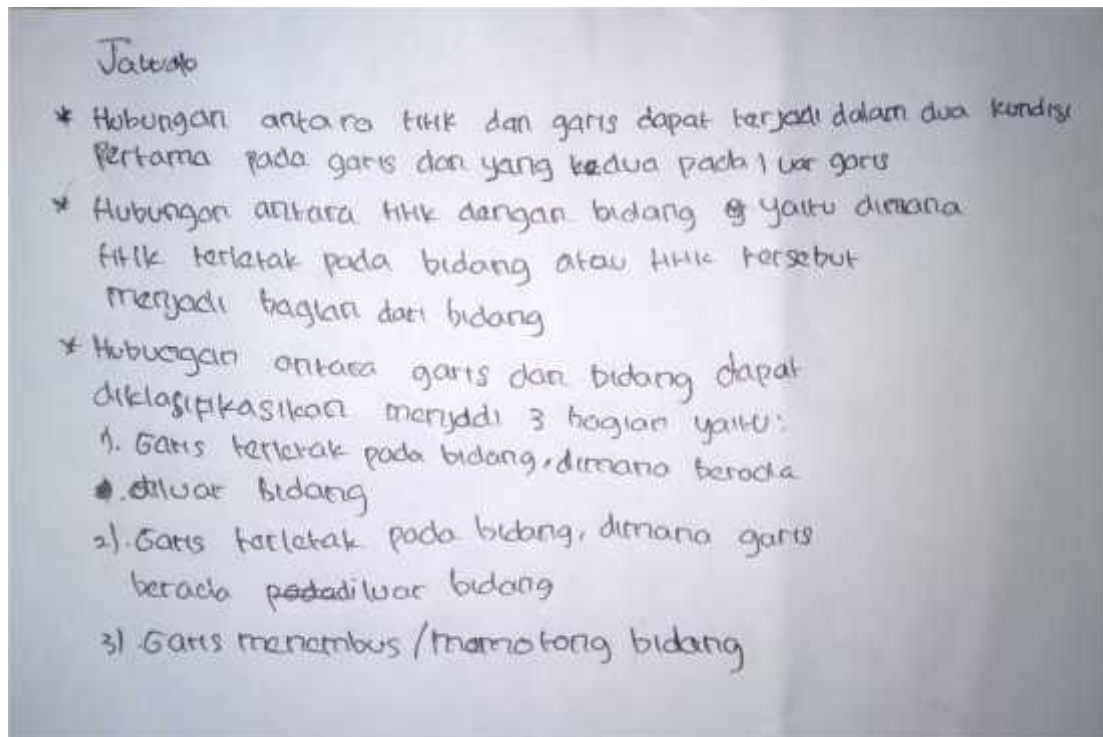 Jawab
* Hubungan antara titik dan garis dapat terjadi dalam dua kondisi
Pertama pada garis dan yang kedua pada luar garis
* Hubungan antara titik dengan bidang yaitu dimana
titik terletak pada bidang atau titik tersebut
menjadi bagian dari bidang
* Hubungan antara garis dan bidang dapat
diklasipikasikan menjadi 3 bagian yaitu:
1. Garis terletak pada bidang, dimana berada
diluar bidang
2). Garis terletak pada bidang, dimana garis
berada diluar bidang
3) Garis menembus / memotong bidang